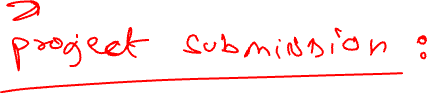 project submission :